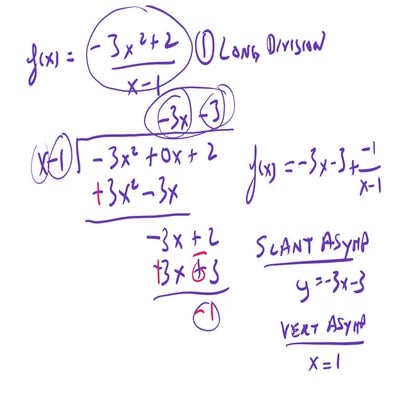 f(x) = (-3x²+2)/(x-1) ① LONG DIVISION
-3x -3
x-1 ) -3x² + 0x + 2
+3x² - 3x
-3x + 2
+3x - 3
-1
f(x) = -3x-3 + -1/(x-1)
SLANT ASYMP
y = -3x-3
VERT ASYMP
x = 1